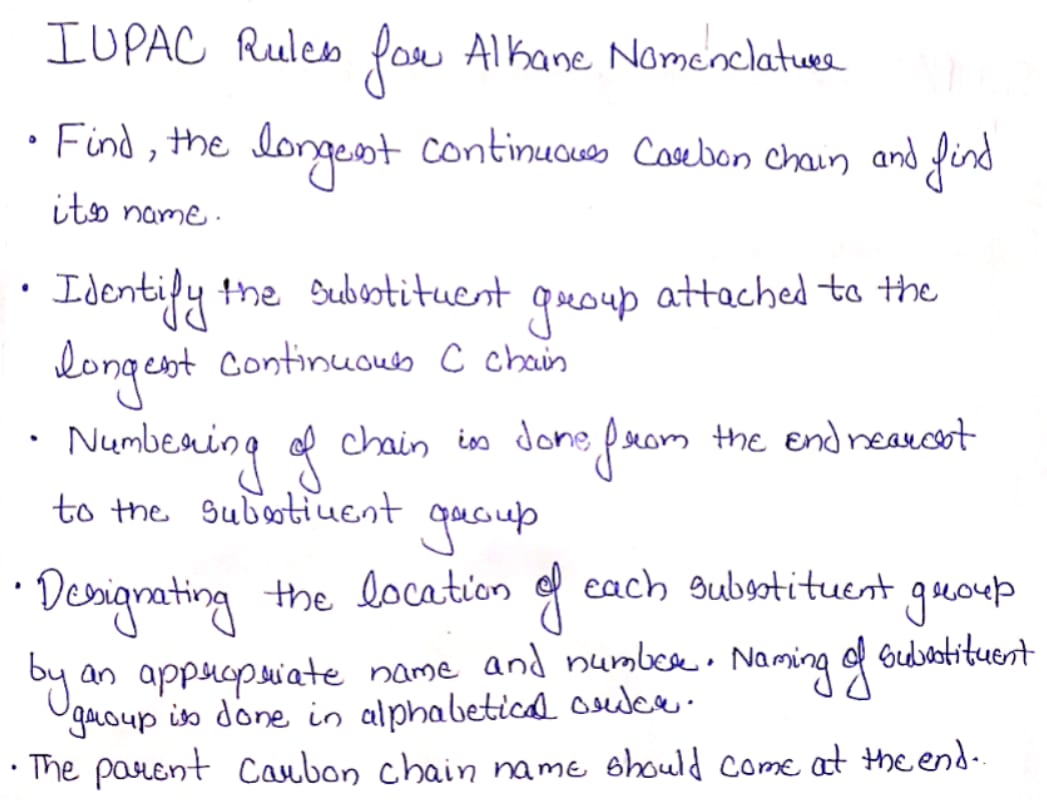 IUPAC Rules for Alkane Nomenclature
• Find, the longest continuous Carbon chain and find
its name.
• Identify the substituent group attached to the
longest continuous C chain
• Numbering of chain is done from the end nearest
to the substiuent group
• Designating the location of each substituent group
by an appropriate name and number. Naming of substituent
group is done in alphabetical order.
• The parent Carbon chain name should come at the end..